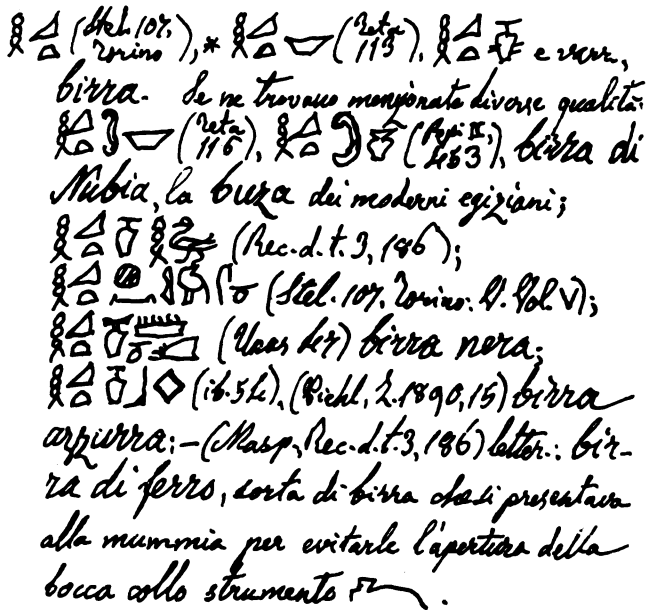 𓎛𓈎𓏏 (Stel. 107. Torino), * 𓎛𓈎𓏏𓎟 (Teta 113), 𓎛𓈎𓏏𓏊 e varr.,
birra. Se ne trovano menzionate diverse qualità:
𓎛𓈎𓏏 𓎟 (Teta 116), 𓎛𓈎𓏏 𓏊 (Pepi II, 463), birra di
Nubia, la buza dei moderni egiziani;
𓎛𓈎𓏏𓏊𓎛 (Rec. d. t. 3, 186);
𓎛𓈎𓏏𓐍 (Stel. 107. Torino. V. Vol. V);
𓎛𓈎𓏏𓏊𓏠 (Unas) birra nera;
𓎛𓈎𓏏𓏊𓃀 (ib.), (Piehl, Z. 1890, 15) birra
azzurra; – (Masp, Rec. d. t. 3, 186) letter.: bir-
ra di ferro, sorta di birra che si presentava
alla mummia per evitarle l'apertura della
bocca collo strumento .